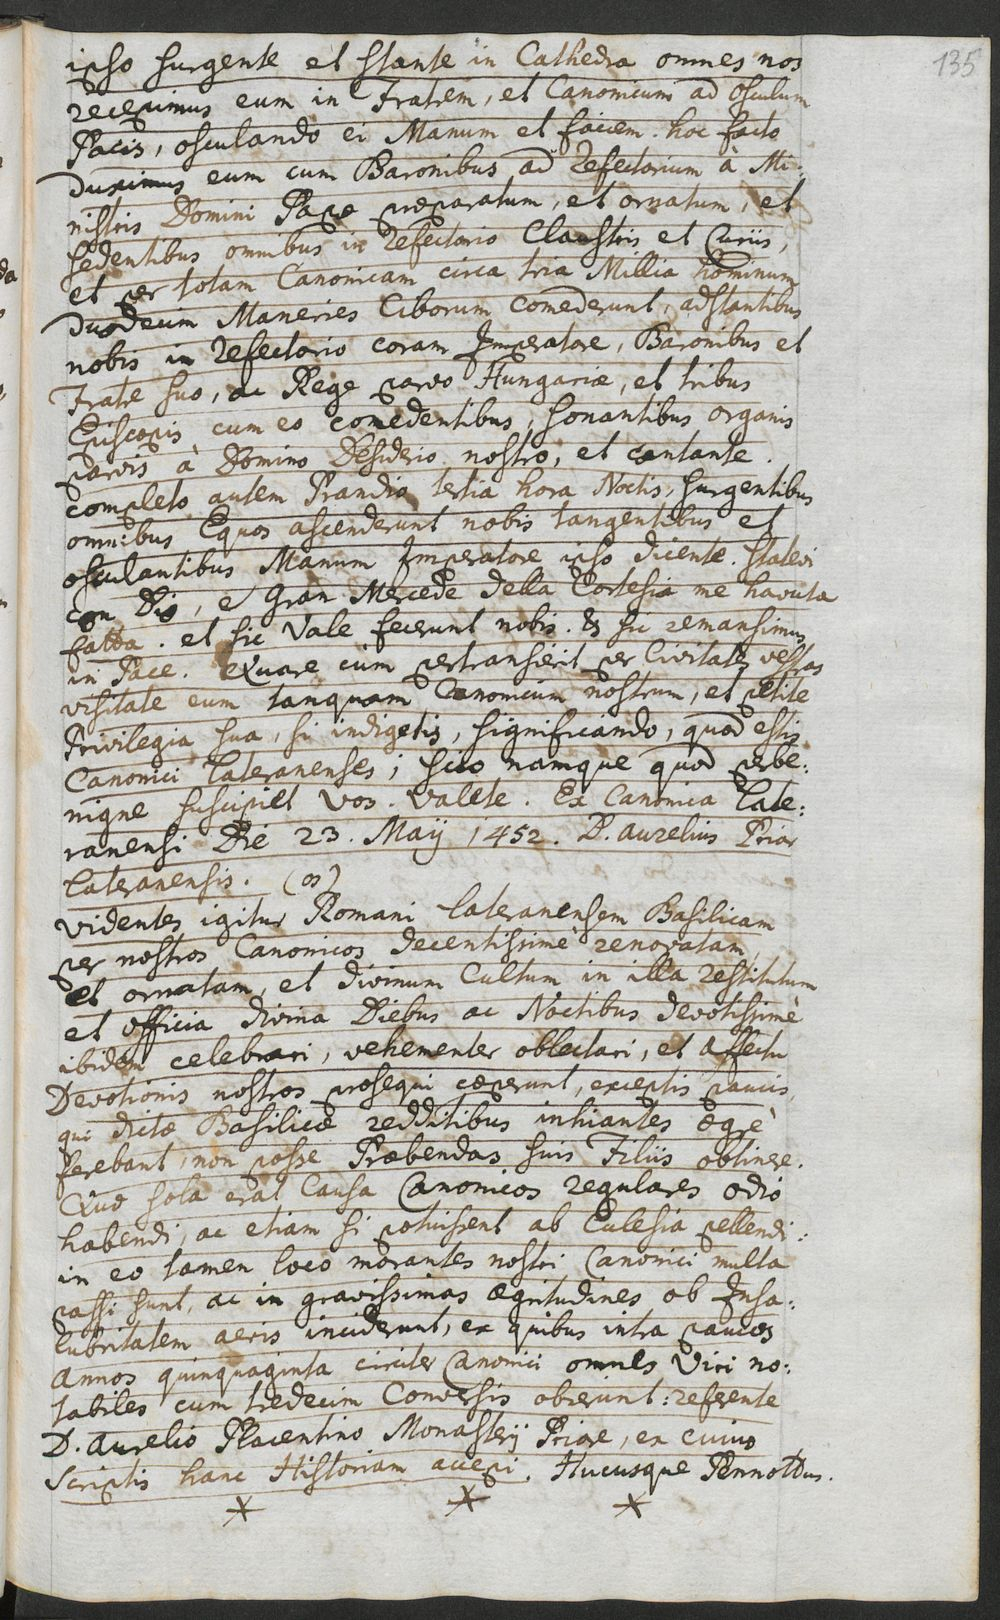 135
ipso surgente et stante in Cathedra omnes nos
recepimus eum in Fratrem, et Canonicum ad osculum
Pacis, osculando ei Manum et faciem. hoc facto
duximus eum cum Baronibus ad Refectorium à Mi:
nistris Domini Papæ præparatum, et ornatum, et
sedentibus omnibus in Refectorio Claustris et Curiis,
et per totam Canonicam circa tria Millia hominum
duodecim Maneries Ciborum comederunt, adstantibus
nobis in Refectorio coram Imperatore, Baronibus et
Fratre suo, ac Rege parvo Hungariæ, et tribus
Episcopis cum eo comedentibus, sonantibus organis
parvis à Domino Desiderio nostro, et cantante.
completo autem Prandio tertia hora Noctis, surgentibus
omnibus Equos ascenderunt nobis tangentibus et
osculantibus Manum Imperatore ipso dicente. Statevi
con Dio, e Gran Mercede della Cortesia me havuta
fatta. et sic Vale fecerunt nobis. & sic remansimus
in Pace. Quare cùm pertransierit per Civitates vestras
visitate eum tanquam Canonicum nostrum, et petite
Privilegia sua, si indigetis, significando, quod estis
Canonici Lateranenses; scio namque quod perbe:
nigne suscipiet vos. Valete. Ex Canonica Late:
ranensi Die 23. Maÿ 1452. D. Aurelius Prior
Lateranensis. (os)
videntes igitur Romani Lateranensem Basilicam
per nostros Canonicos decentissimè renovatam,
et ornatam, et divinum Cultum in illa restitutum
et officia divina Diebus ac Noctibus devotissimè
ibidem celebrari, vehementer oblectari, et affectu
Devotionis nostros prosequi cæperunt, exceptis paucis,
qui dictæ Basilicæ redditibus inhiantes ægrè
ferebant, non posse Præbendas suis Filiis obtinere.
Quæ sola erat Causa Canonicos regulares odio
habendi, ac etiam si potuissent ab Eclesia pellendi:
in eo tamen loco morantes nostri Canonici multa
passi sunt, ac in gravissimas ægritudines ob Insa:
lubritatem aeris inciderunt, ex quibus intra paucos
Annos quinquaginta circiter Canonici omnes Viri no:
tabiles cum tredecim Conversis obierunt: referente
D. Aurelio Placentino Monasterÿ Priore, ex cuius
scriptis hanc Historiam accepi. Hucusque Pennottus.